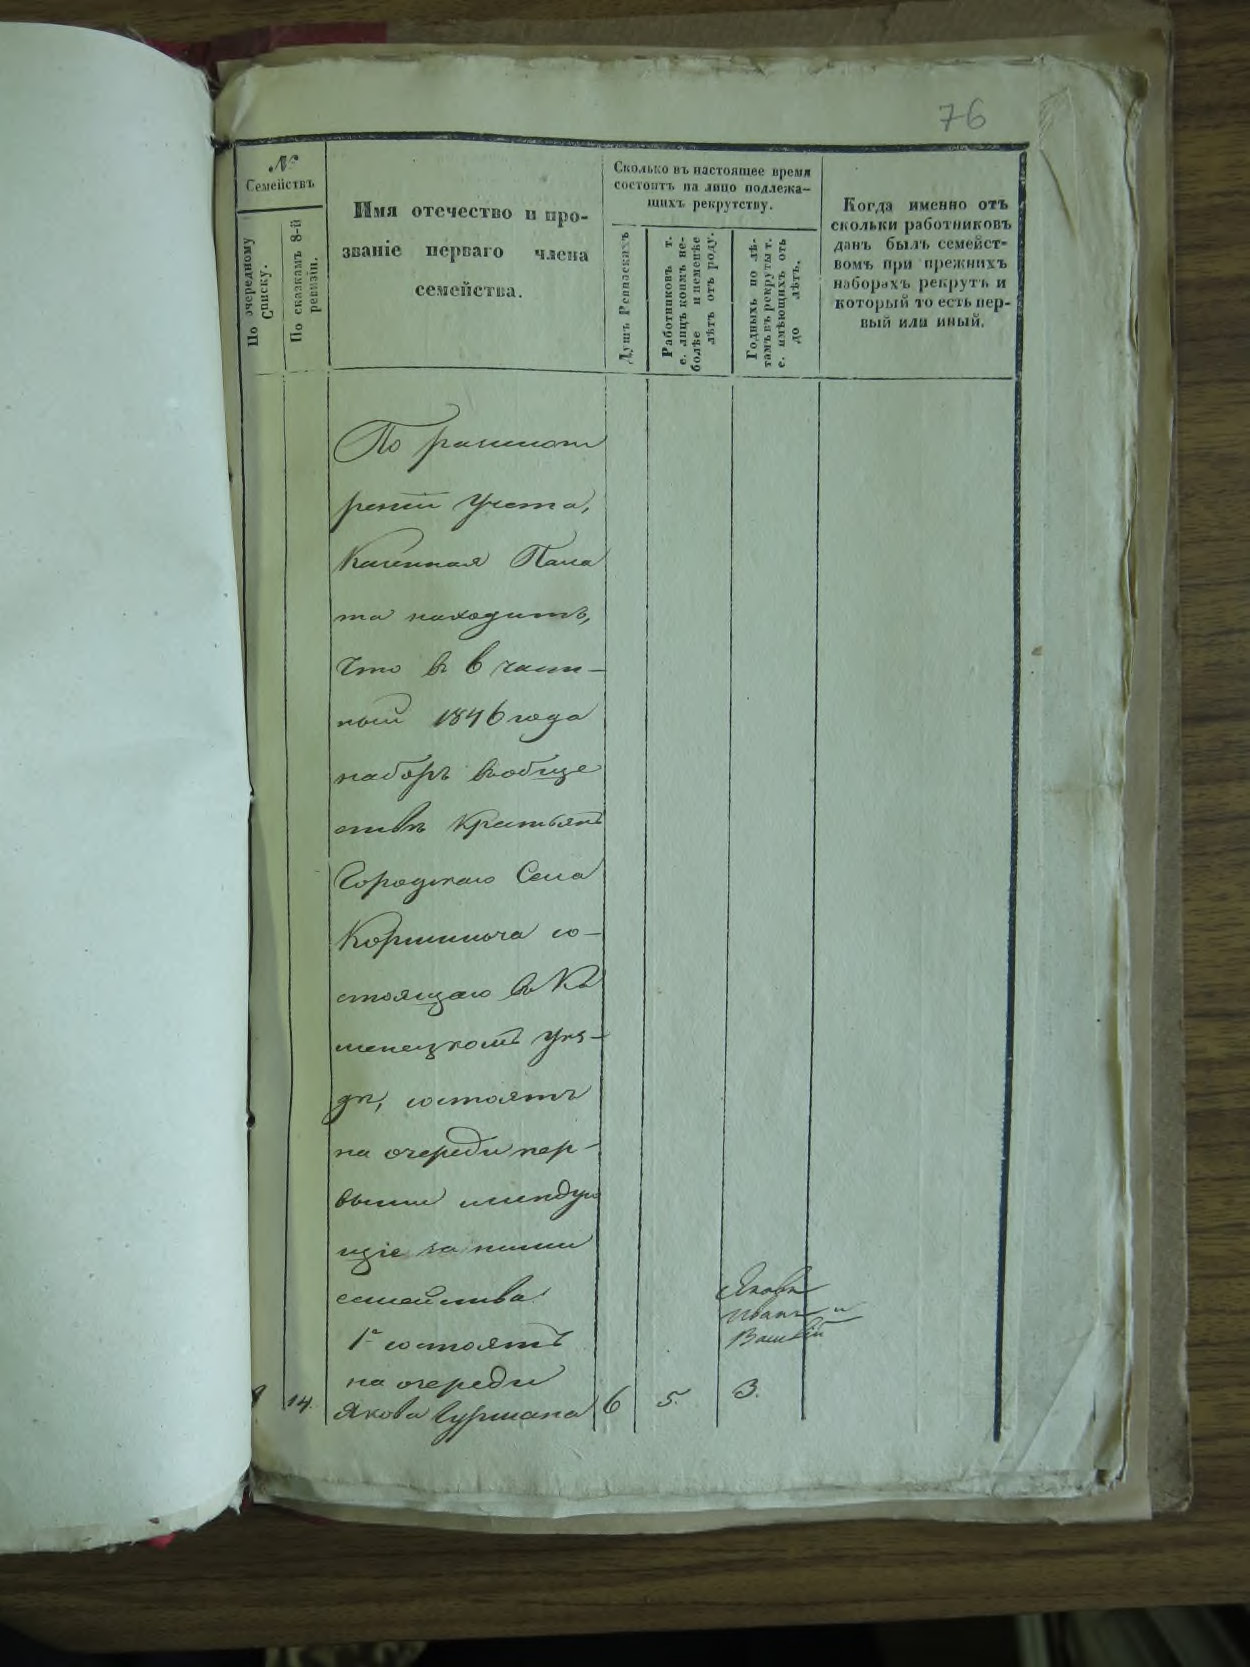 76
№
Семействъ
По очередному
Списку.
По сказкамъ 8-й
ревизіи.
Имя отечество и про-
званіе перваго члена
семейства.
Сколько въ настоящее время
состоитъ на лицо подлежа-
щихъ рекрутству.
Душъ Ревизскихъ
Работниковъ т.
е. лицъ коимъ не-
болѣе и неменѣе
лѣтъ отъ роду.
Годныхъ по лѣ-
тамъ въ рекруты т.
е. имѣющихъ отъ
до лѣтъ.
Когда именно отъ
сколки работниковъ
данъ былъ семейст-
вомъ при прежнихъ
наборахъ рекрутъ и
который то есть пер-
вый или иный.
По расмот
реніи Учета,
Казенная Пала
та находитъ,
что въ 6 част-
ный 1846 года
наборъ вобще
ствѣ Крестьянъ
Городскаго Села
со-
стоящаго въ Ка
менецкомъ Уѣз-
дѣ, состоятъ
на очереди пер-
выми ислѣдую
щіе за ними
семейства
1е состоятъ
на очереди
8 14. Якова Гурмана 6 5. 3.
Яковъ
Иванъ и
Василій